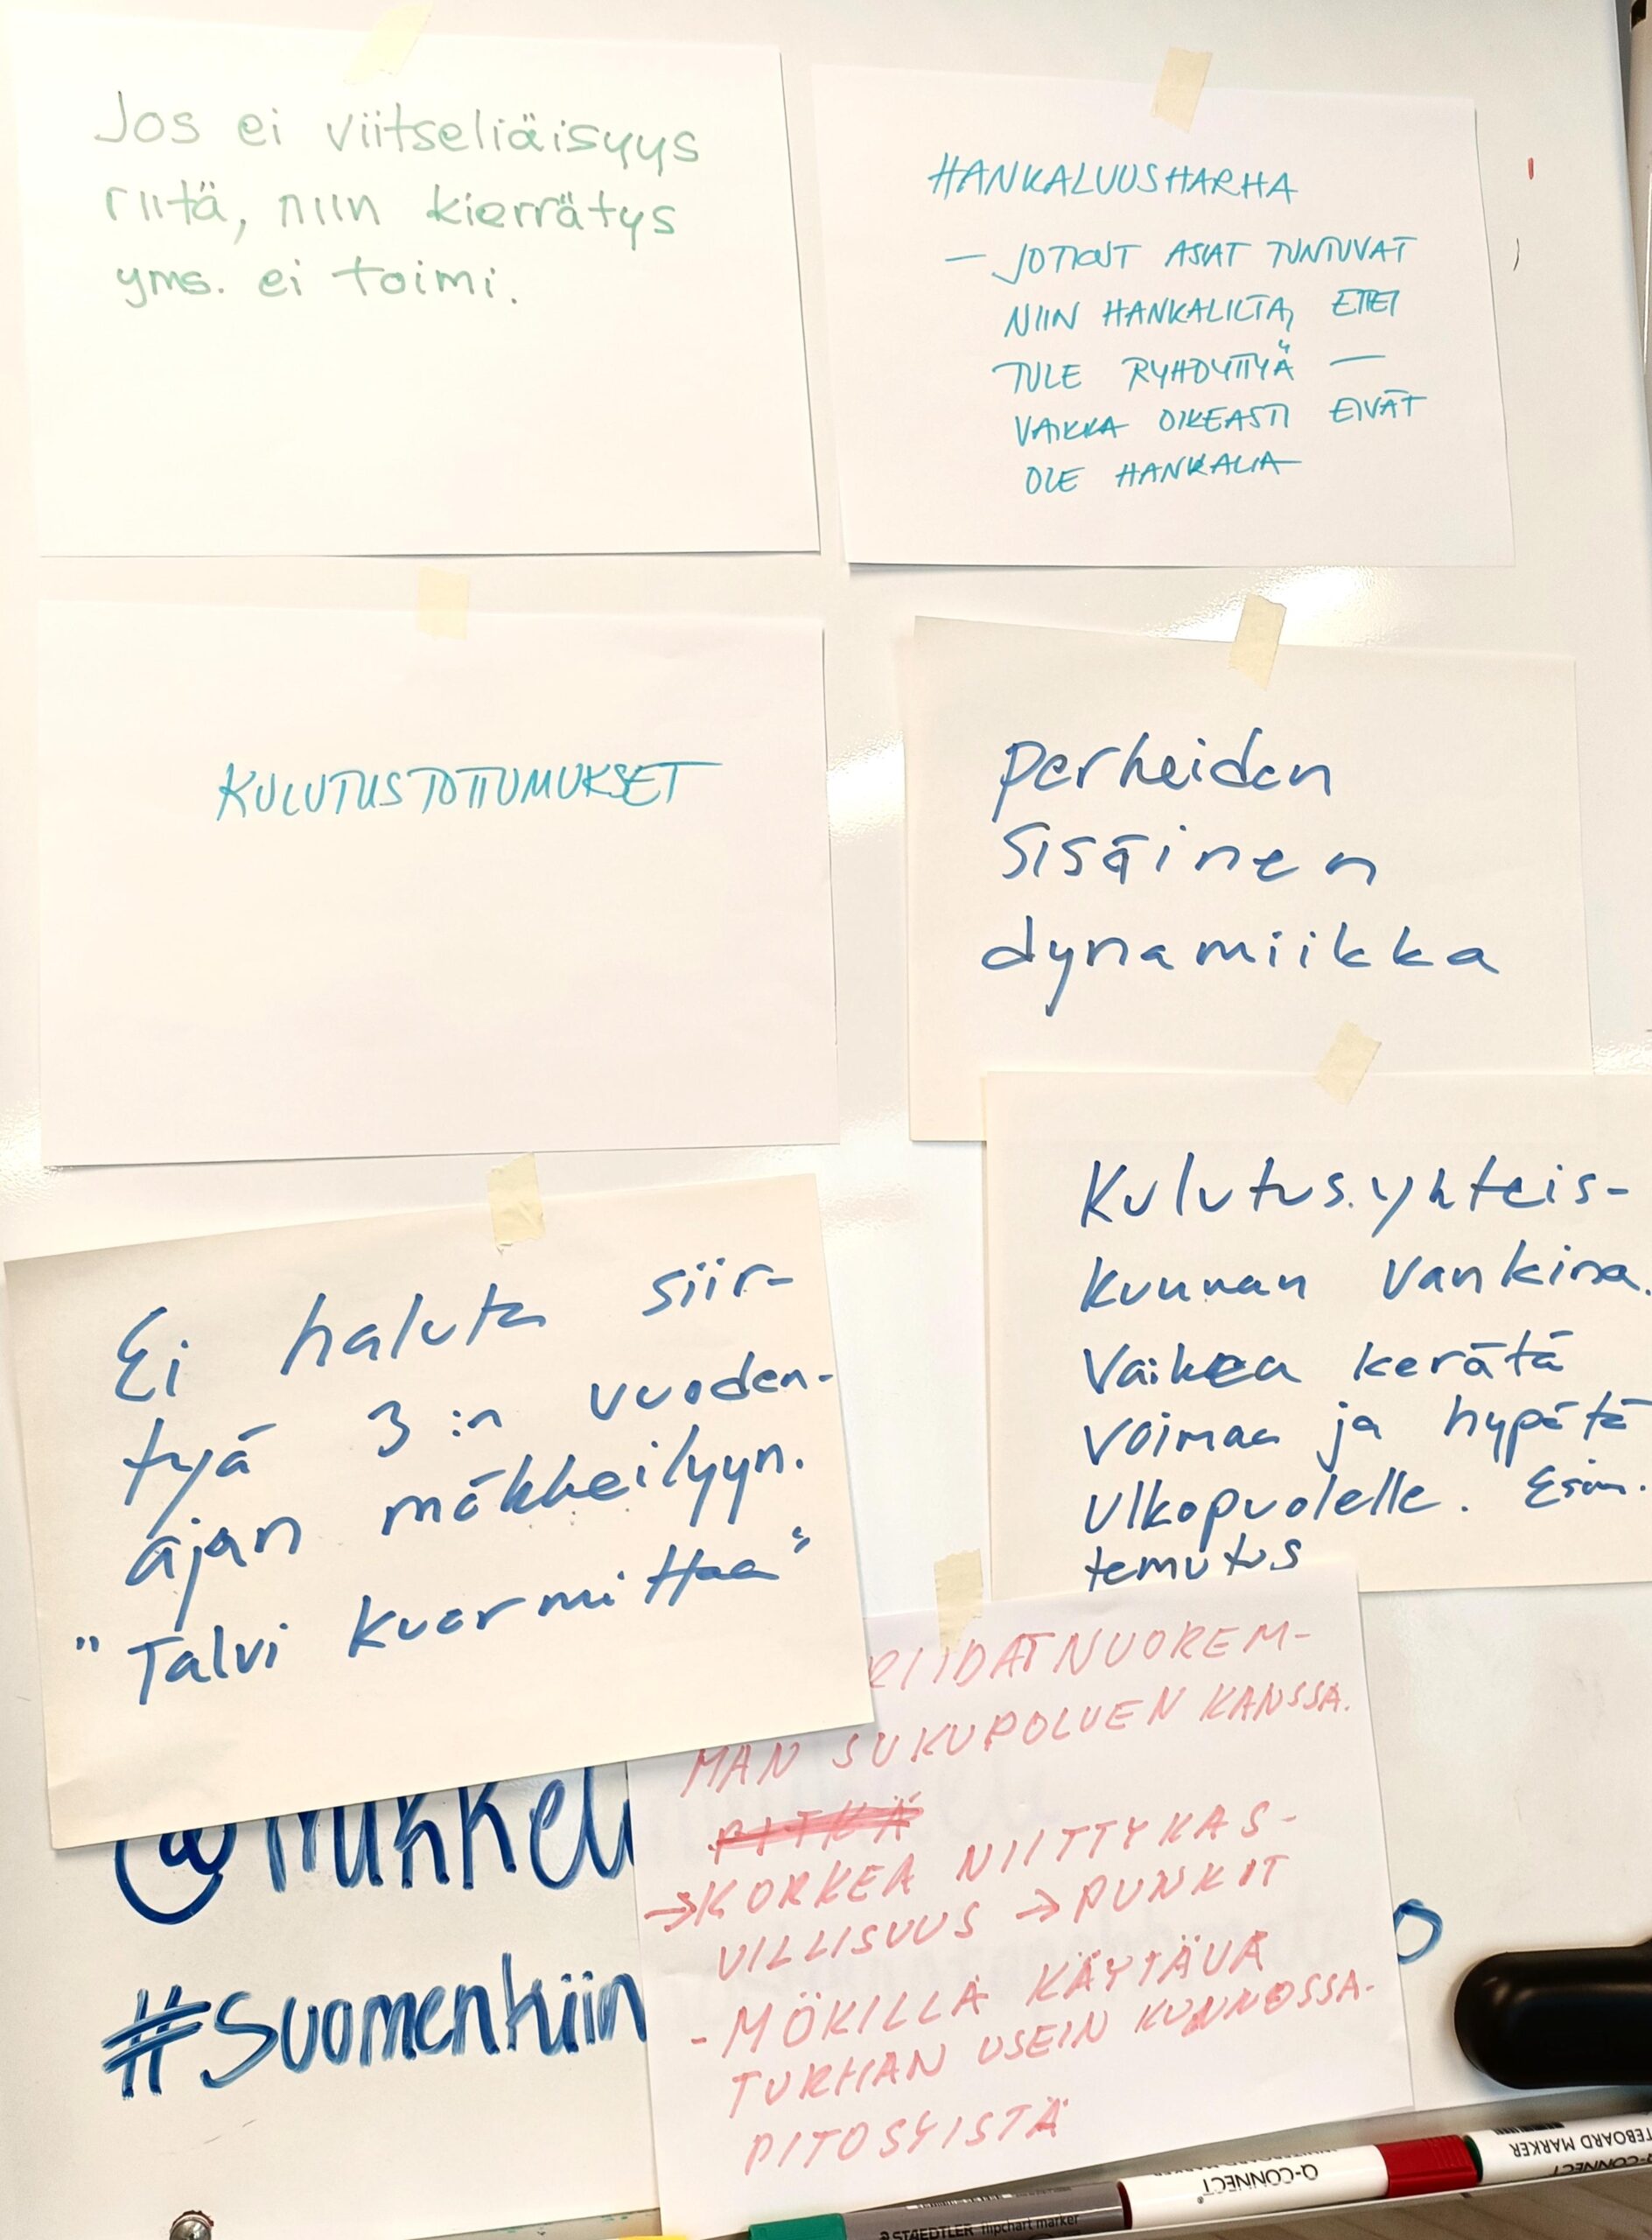 Jos ei viitseliäisyys
riitä, niin kierrätys
yms. ei toimi.
HANKALUUSHARHA
– JOTKUT ASIAT TUNTUVAT
NIIN HANKALILTA, ETTEI
TULE RYHDYTTYÄ –
VAIKKA OIKEASTI EIVÄT
OLE HANKALIA
KULUTUSTOTTUMUKSET
perheiden
sisäinen
dynamiikka
Kulutusyhteis-
kunnan vankina.
Vaikea kerätä
voimaa ja hypätä
ulkopuolelle. Esim.
temutus
Ei haluta siir-
tyä 3:n vuoden-
ajan mökkeilyyn.
"Talvi kuormittaa"
RIIDAT NUOREM-
MAN SUKUPOLVEN KANSSA.
PITKÄ
→KORKEA NIITTYKAS-
VILLISUUS → PUNKIT
- MÖKILLÄ KÄYTÄVÄ
TURHAN USEIN KUNNOSSA-
PITOSYISTÄ
@mikkeli
#Suomenkiin
o
Q-CONNECT
STAEDTLER flipchart marker
TEBOARD MARKER
Q-CONNECT